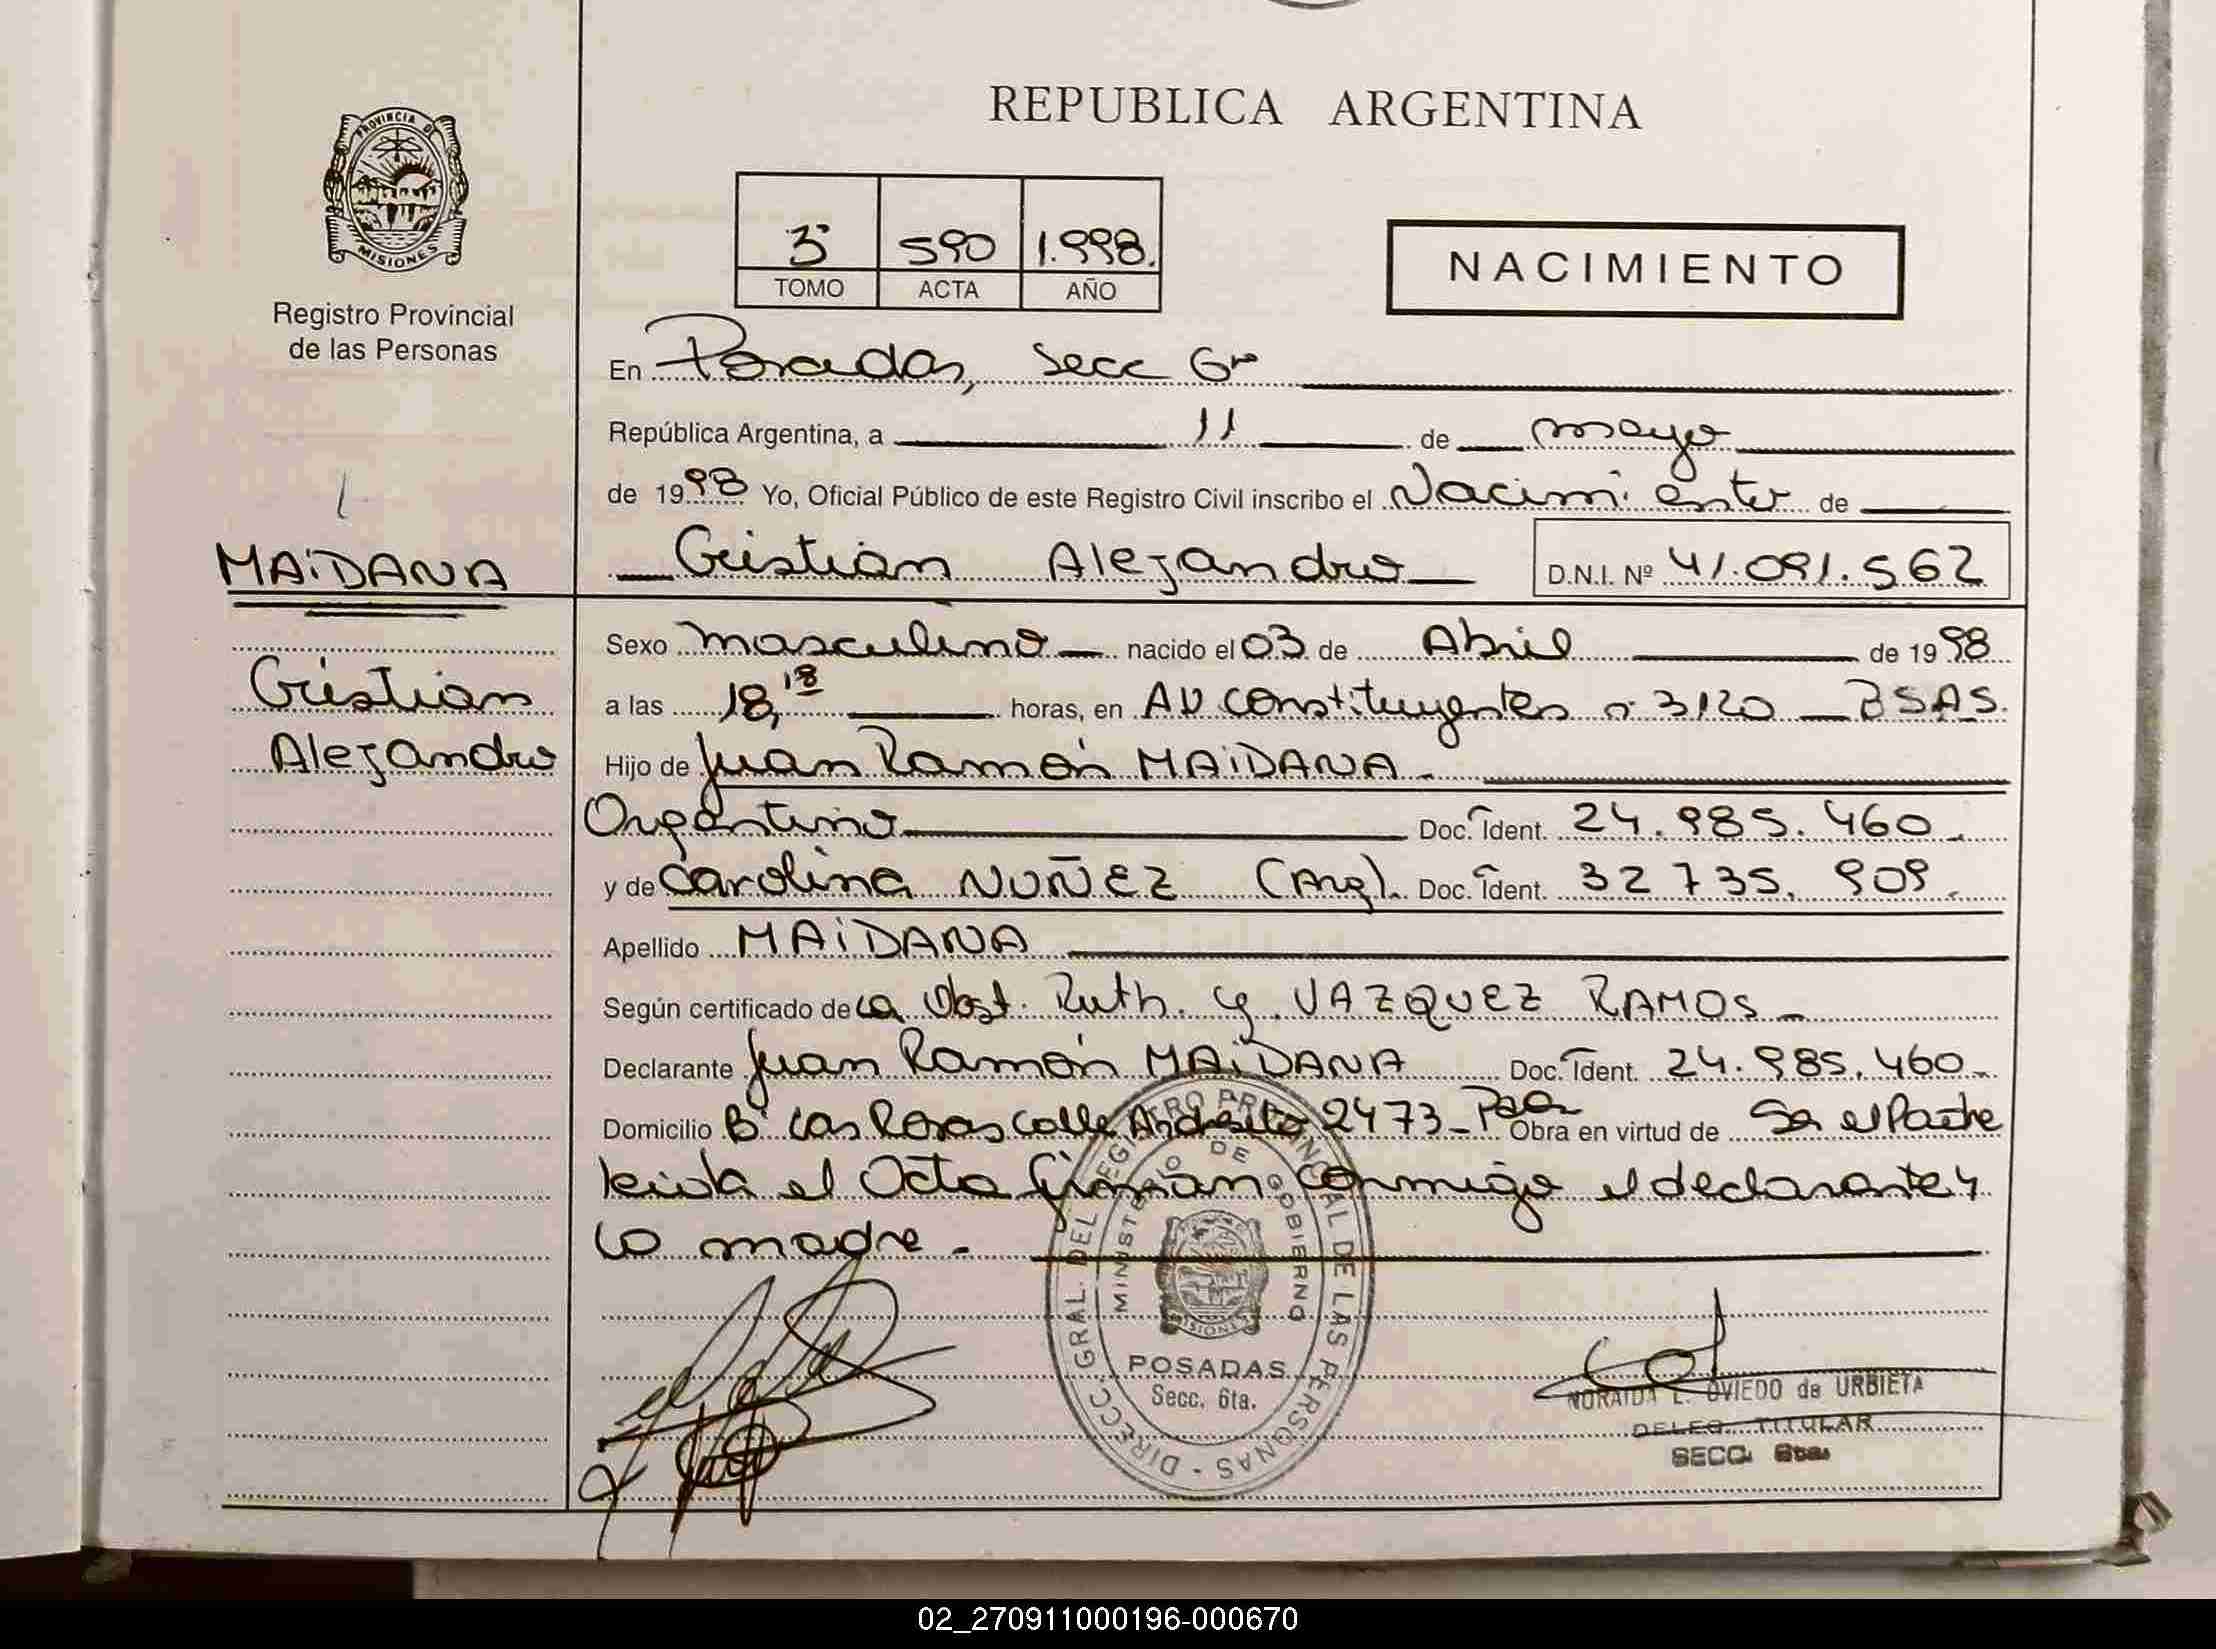 REPUBLICA ARGENTINA
PROVINCIA DE
MISIONES
Registro Provincial
de las Personas
3º 590 1.998.
TOMO ACTA AÑO
NACIMIENTO
En Posadas, Secc 6ta
República Argentina, a 11 de mayo
de 1998 Yo, Oficial Público de este Registro Civil inscribo el Nacimiento de
MAiDANA
Cristian Alejandro D.N.I. Nº 41.091.562
Cristian
Alejandro
Sexo masculino nacido el 03 de Abril de 1998
a las 18,18 horas, en AV Constituyentes nº 3120 BSAS.
Hijo de Juan Ramón MAiDANA.
Argentino Doc. Ident. 24.985.460.
y de Carolina NUÑEZ (Arg). Doc. Ident. 32.735.909.
Apellido MAiDANA
Según certificado de La Obst. Ruth. Y. VAZQUEZ RAMOS
Declarante Juan Ramón MAiDANA Doc. Ident. 24.985.460
Domicilio Bº Las Rosas calle Andresito 2473 Obra en virtud de Ser el Padre
leida el Acta firman conmigo el declarante y
la madre.
DIRECC. GRAL. DEL REGISTRO PROVINCIAL DE LAS PERSONAS
MINISTERIO DE GOBIERNO
MISIONES
POSADAS
Secc. 6ta.
NORAIDA E. OVIEDO de URBIETA
DELEG. TITULAR
SECC. 6ta.
02_270911000196-000670